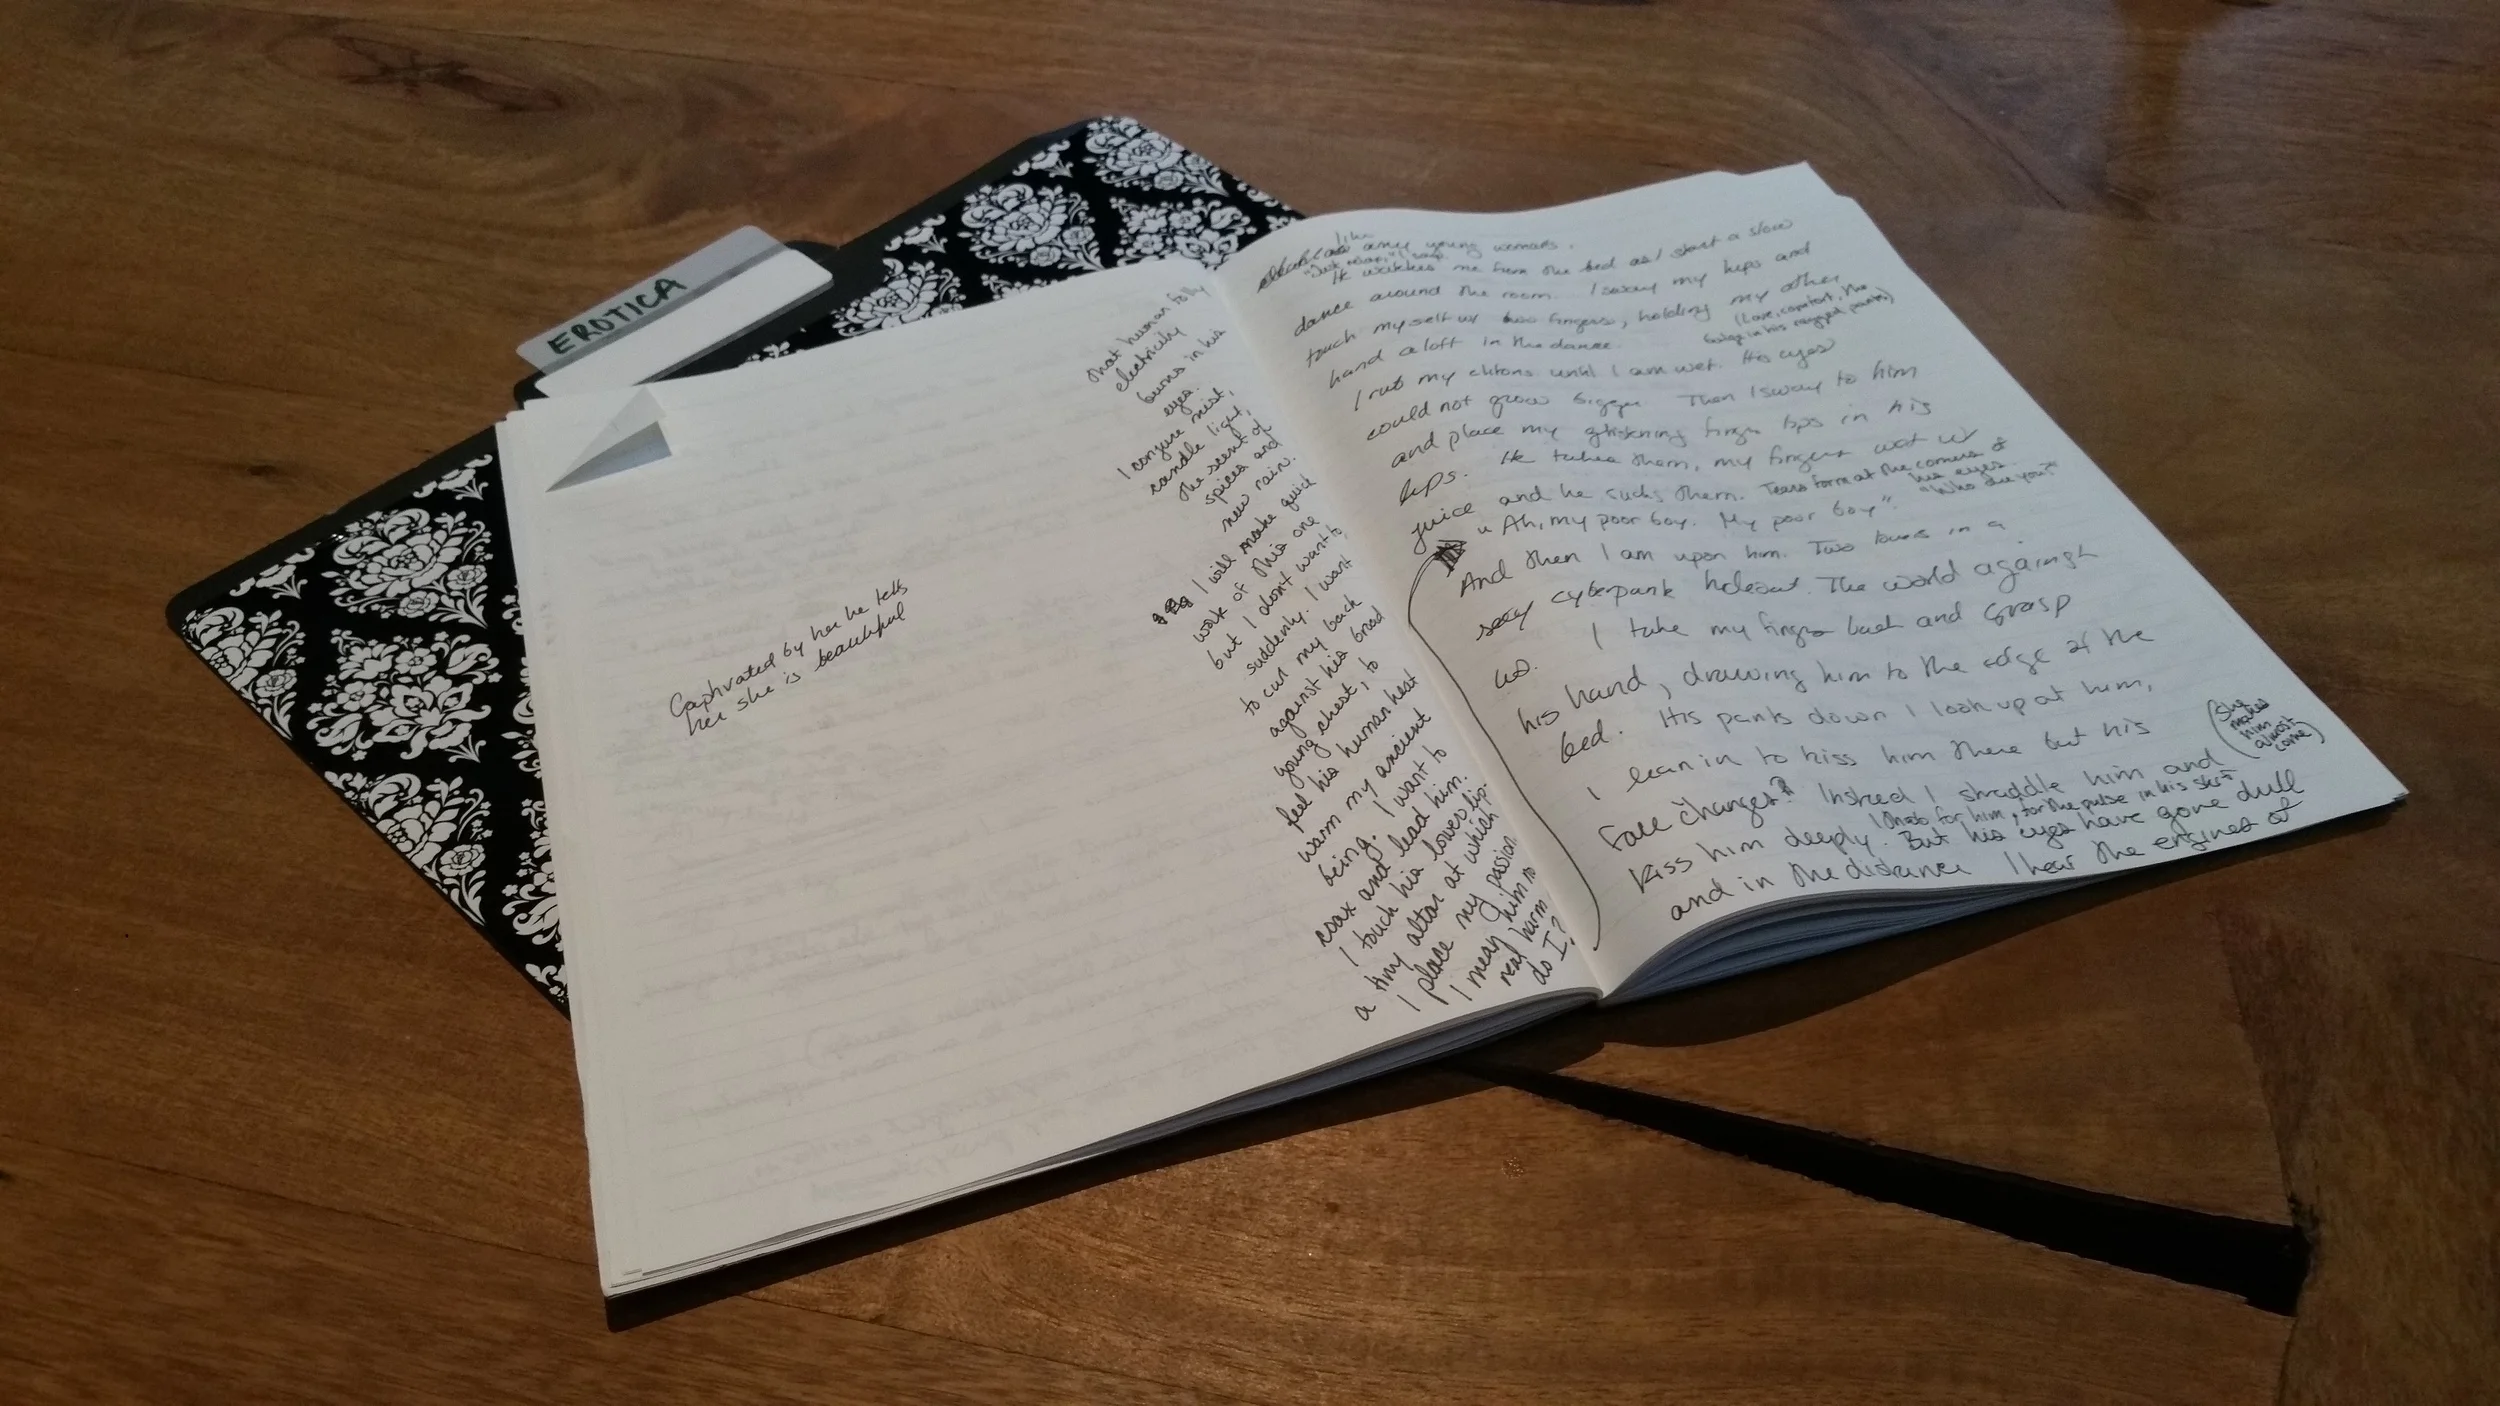 EROTICA
Captivated by her he tells
her she is beautiful
that human
electricity
burns in his
eyes.
I conjure mist,
candle light,
the scent of
spices and
new rain.
I will make quick
work of this one
but I don't want to,
suddenly. I want
to curl my back
against his broad
young chest, to
feel his human heat
warm my ancient
being. I want to
coax and lead him.
I touch his lower lip:
a tiny altar at which
I place my passion.
I mean him no
real harm
do I?
like
any young womans.
"Just relax," I say.
He watches me from the bed as I start a slow
dance around the room. I sway my hips and
touch myself w/ two fingers, holding my other
hand aloft in the dance.
(Love, comfort, the
bulge in his ragged pants)
I rub my clitoris until I am wet. His eyes
could not grow bigger. Then I sway to him
and place my glistening finger tips in his
lips. He takes them, my fingers wet w/
juice and he sucks them. Tears form at the corners of
his eyes.
"Who are you?"
"Ah, my poor boy. My poor boy".
And then I am upon him. Two lovers in a
sexy cyberpunk hideout. The world against
us. I take my fingers back and grasp
his hand, drawing him to the edge of the
bed. His pants down I look up at him,
I lean in to kiss him there but his
face changes? Instead I straddle him and
(She
makes
him
almost
come)
for him, for the pulse in his
kiss him deeply. But his eyes have gone dull
and in the distance I hear the engines of